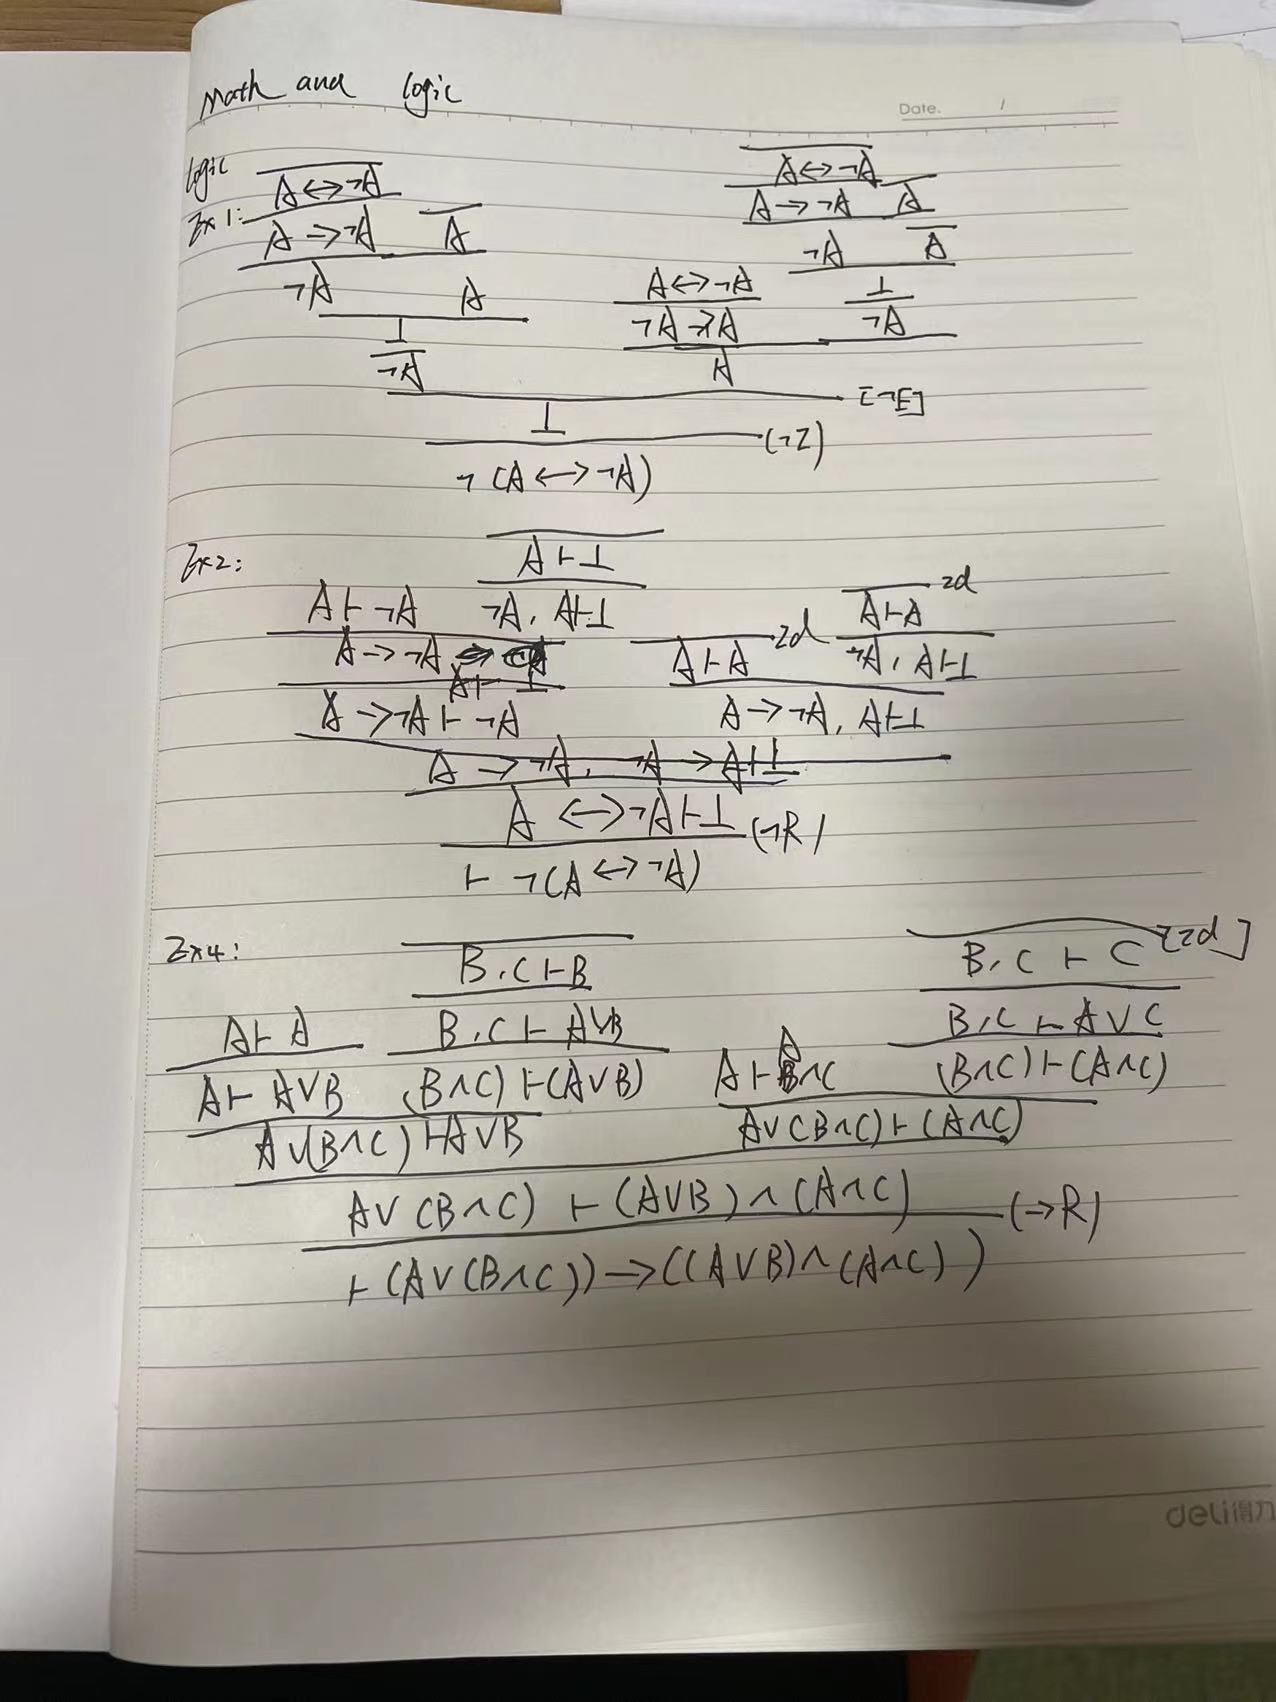 Math and logic
Date. /
logic
Ex 1:
A ↔ ¬A
A → ¬A A
¬A A
⊥
¬A
A ↔ ¬A
A → ¬A A
¬A A
A ↔ ¬A ⊥
¬A → A ¬A
A
[¬E]
⊥
(¬I)
¬ (A ↔ ¬A)
Ex2:
A ⊢ ⊥
A ⊢ ¬A ¬A, A ⊢ ⊥
A → ¬A
A ⊢ ⊥
A → ¬A ⊢ ¬A
A ⊢ A Id
A ⊢ A Id ¬A, A ⊢ ⊥
A → ¬A, A ⊢ ⊥
A → ¬A, ¬A → A ⊢ ⊥
A ↔ ¬A ⊢ ⊥ (¬R)
⊢ ¬(A ↔ ¬A)
Ex4:
B, C ⊢ B
A ⊢ A B, C ⊢ A∨B
A ⊢ A∨B (B∧C) ⊢ (A∨B)
A∨(B∧C) ⊢ A∨B
B, C ⊢ C [Id]
B, C ⊢ A∨C
A ⊢ A∧C (B∧C) ⊢ (A∧C)
A∨(B∧C) ⊢ (A∧C)
A∨(B∧C) ⊢ (A∨B)∧(A∧C) (→R)
⊢ (A∨(B∧C)) → ((A∨B)∧(A∧C))
deli得力